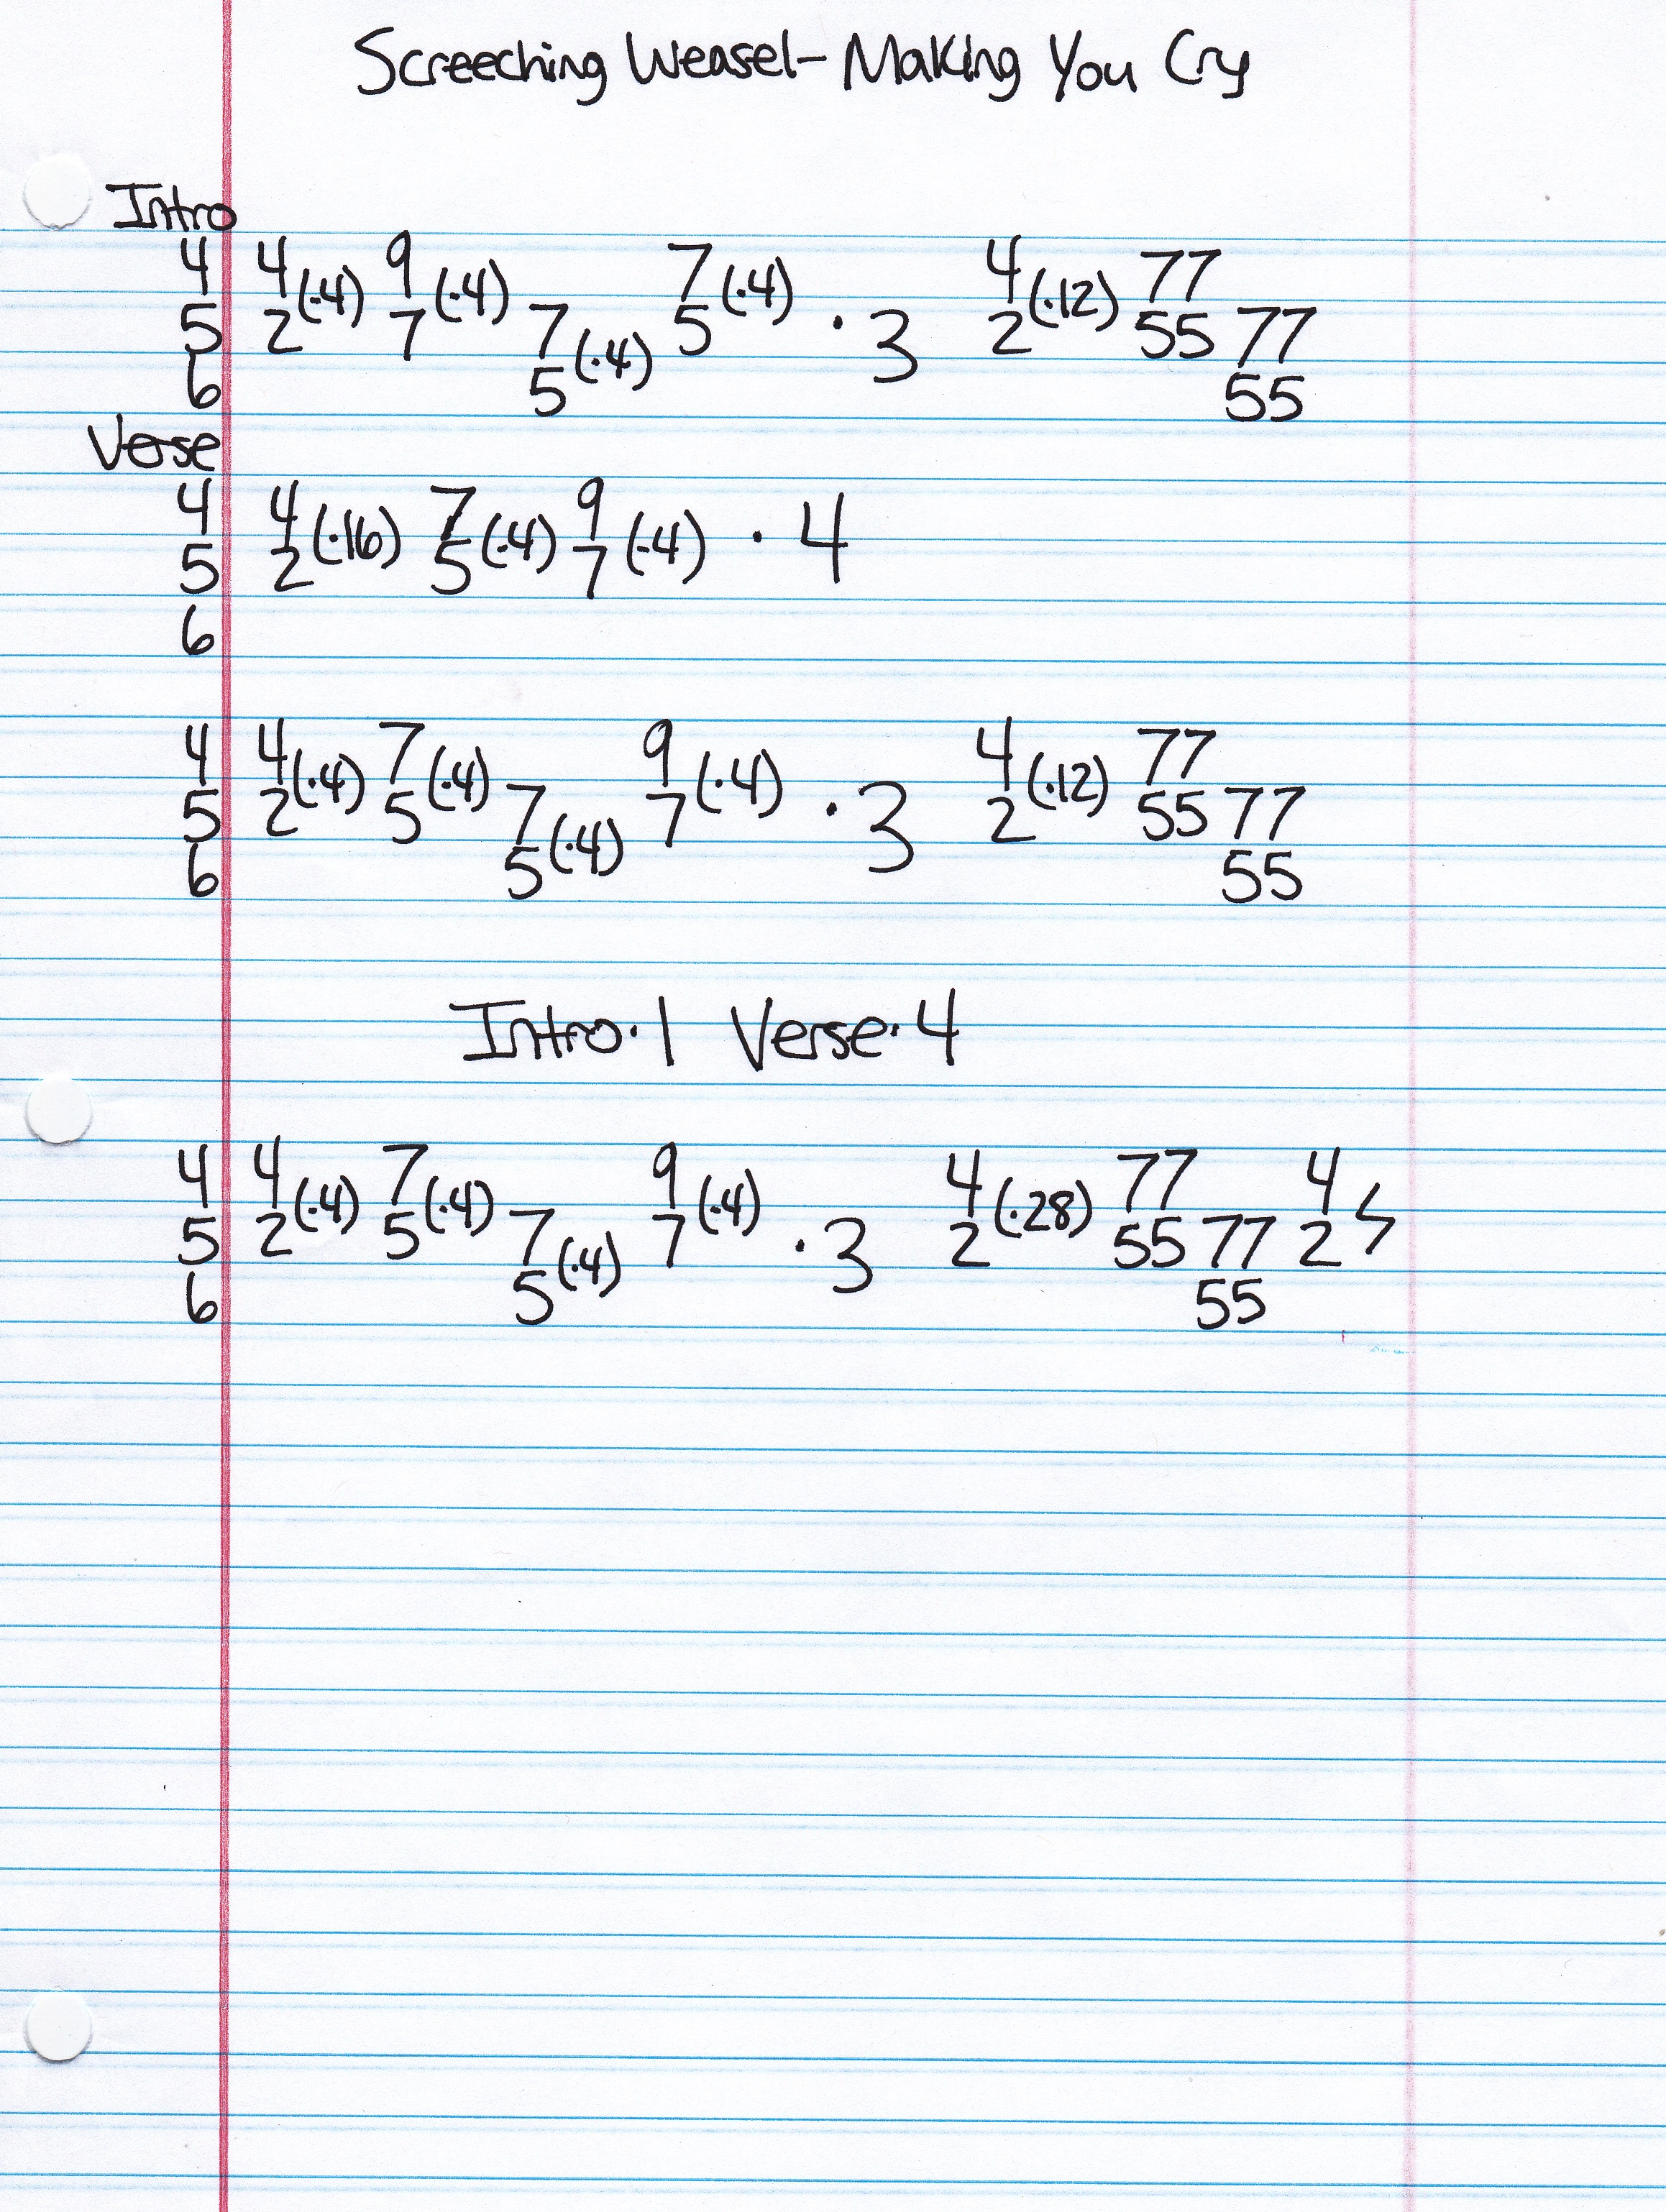 Screeching Weasel- Making You Cry
Intro
4 4 9 7 4 77
(·4) (·4) (·4) (·12)
5 2 7 7 5 · 3 2 55 77
(·4)
6 5 55
Verse
4 4 7 9
(·16) (·4) (·4) · 4
5 2 5 7
6
4 4 7 9 4 77
(·4) (·4) (·4) (·12)
5 2 5 7 7 · 3 2 55 77
(·4)
6 5 55
Intro·1 Verse·4
4 4 7 9 4 77 4
(·4) (·4) (·4) (·28)
5 2 5 7 7 · 3 2 55 77 2
(·4)
6 5 55